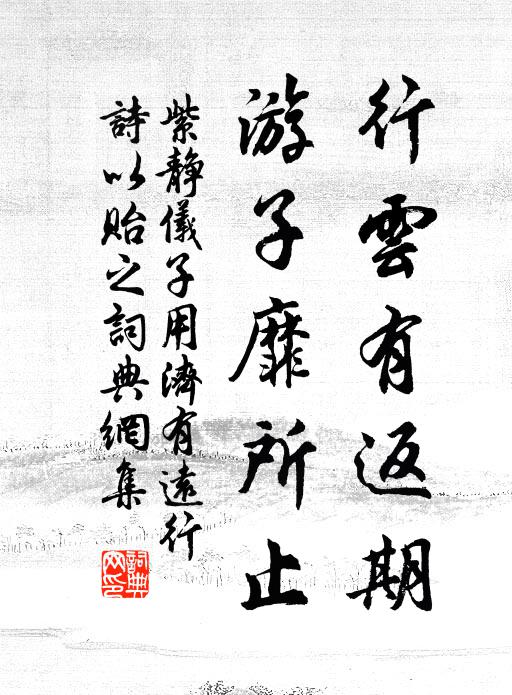 行雲有返期
游子靡所止
紫静儀子用濟有遠行
詩以貽之詞典網集
詞典網印